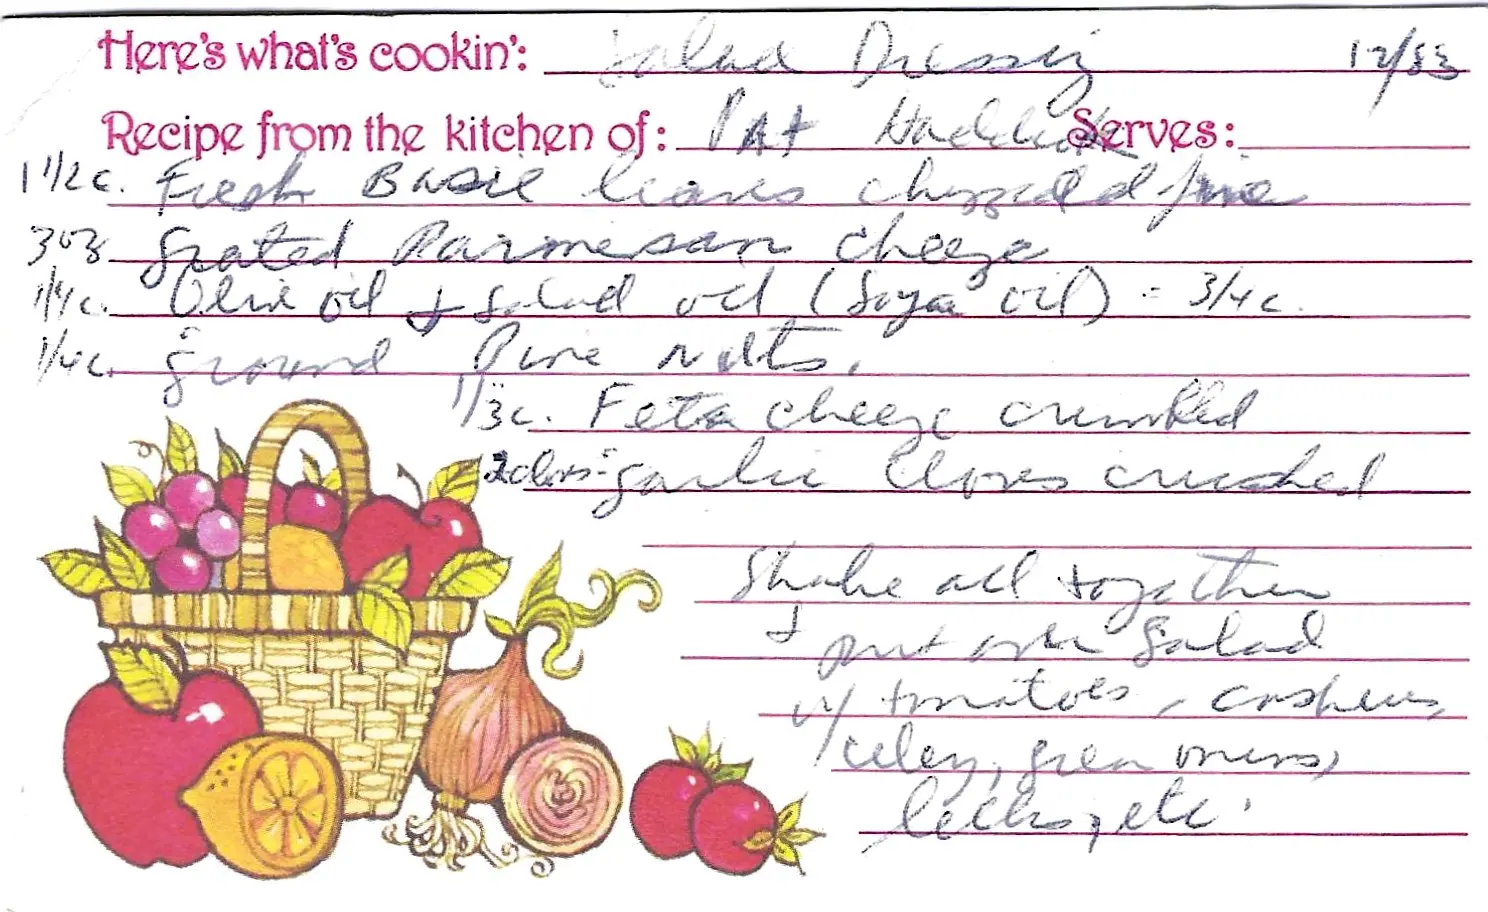 Here's what's cookin': Salad Dressing 12/83
Recipe from the kitchen of: Pat Serves:
1 1/2 c. Fresh Basil leaves chopped fine
3 oz Grated Parmesan cheeze
1/4 c. Olive oil & salad oil (Soya oil) = 3/4 c.
1/4 c. ground Pine nuts.
1/3 c. Feta cheeze crumbled
2 garlic cloves crushed
Shake all together
& put over Salad
w/ tomatoes, cashews,
celery, green onions,
etc.